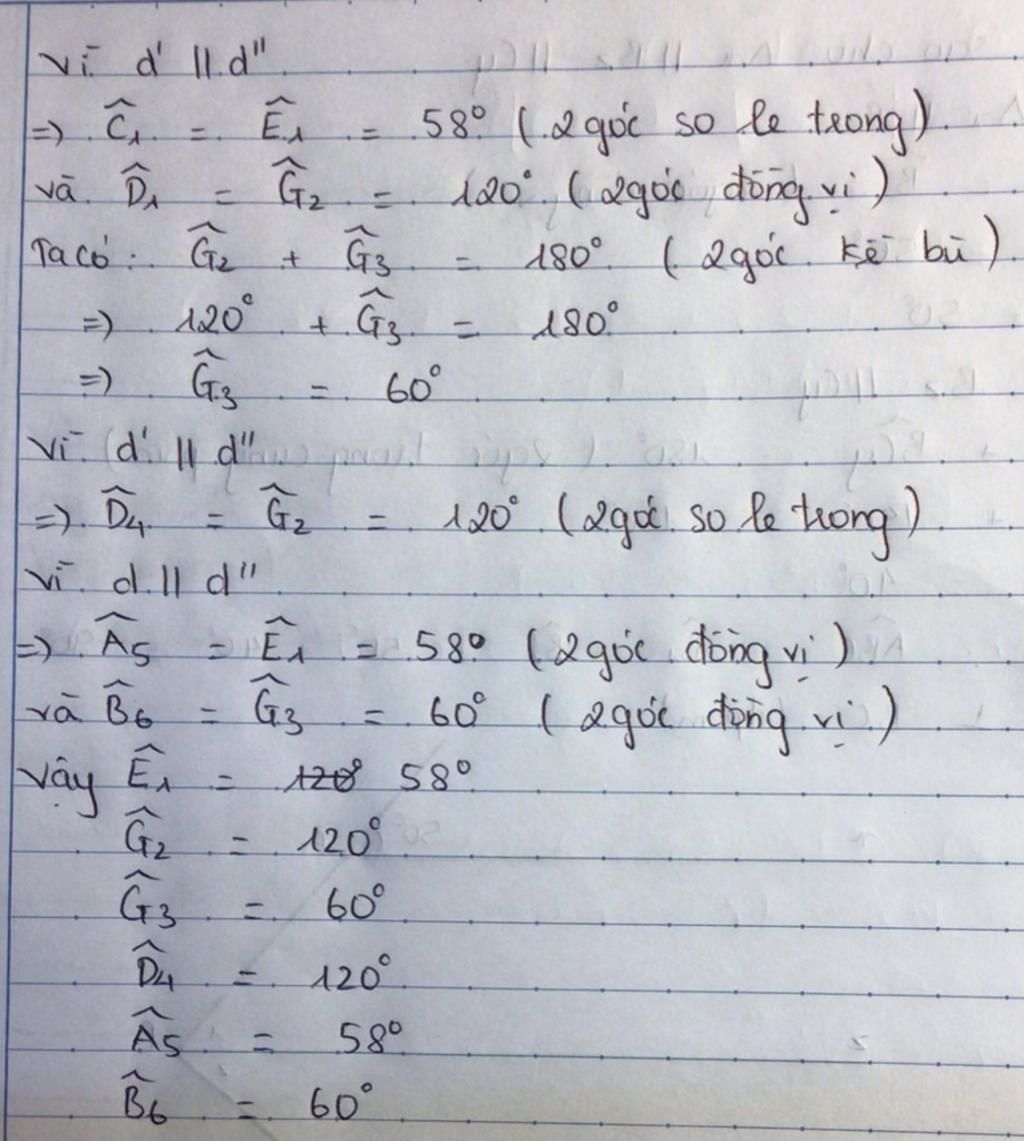 Vì d' // d"
=> Ĉ₁ = Ê₁ = 58° (2 góc so le trong)
và D̂₁ = Ĝ₂ = 120° (2 góc đồng vị)
Ta có: Ĝ₂ + Ĝ₃ = 180° (2 góc kề bù)
=> 120° + Ĝ₃ = 180°
=> Ĝ₃ = 60°
Vì d' // d"
=> D̂₄ = Ĝ₂ = 120° (2 góc so le trong)
Vì d // d"
=> Â₅ = Ê₁ = 58° (2 góc đồng vị)
và B̂₆ = Ĝ₃ = 60° (2 góc đồng vị)
Vậy Ê₁ = 120° 58°
Ĝ₂ = 120°
Ĝ₃ = 60°
D̂₄ = 120°
Â₅ = 58°
B̂₆ = 60°